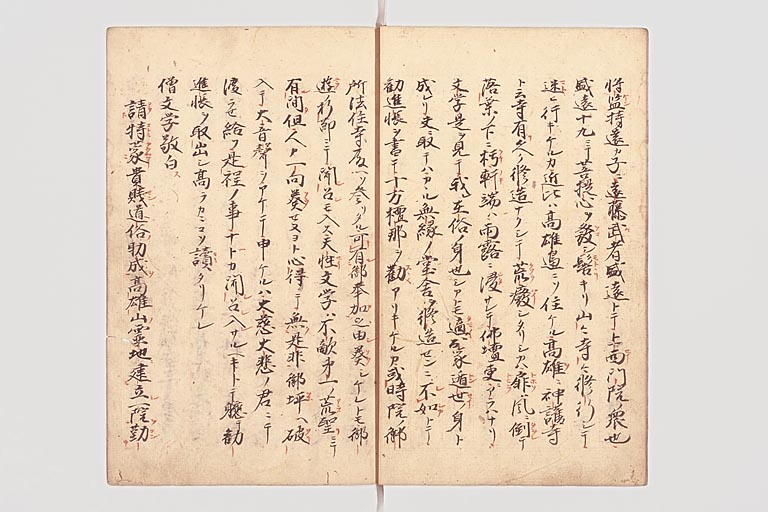 将監持遠カ子ニ遠藤武者盛遠トテ上西門院ノ衆也
盛遠十九ニテ菩提心ヲ發シ髻キリ山々寺々修行シテ
迷ヒ行キケルカ近比ハ高雄邊ニソ住ケル高雄ニ神護寺
ト云寺有久ク修造ナクシテ荒癈シタリシカハ扉ハ風ニ倒テ
落葉ノ下ニ朽軒端ハ雨露ニ浸サレテ佛壇更アラハナリ
文学是ヲ見テ我レ在俗ノ身也シカトモ適出家遁世ノ身ト
成レリ文ヲ取テハカヽル無縁ノ堂舎ヲ修造センニ不如トテ
勧進帳ヲ書テ十方檀那ヲ勧アリキケルカ或時院ノ御
所法住寺殿ヘソ參リタル可有御奉加之由奏シケレトモ御
遊ノ折節ニテ聞召モ入ス天性文学ハ不敵第一ノ荒聖ニテ
有間但人カ一向奏セヌヨト心得テ無是非御坪ヘ破
入テ大音聲シアケテ申ケルハ大慈大悲ノ君ニテ
渡ラせ給フ是程ノ事ナトカ聞召入サルヘキトテ軈テ勧
進帳ヲ取出シ高ラカニコソ讀タリケレ
僧文学敬白ス
請特蒙貴賤道俗助成高雄山霊地建立一院勤